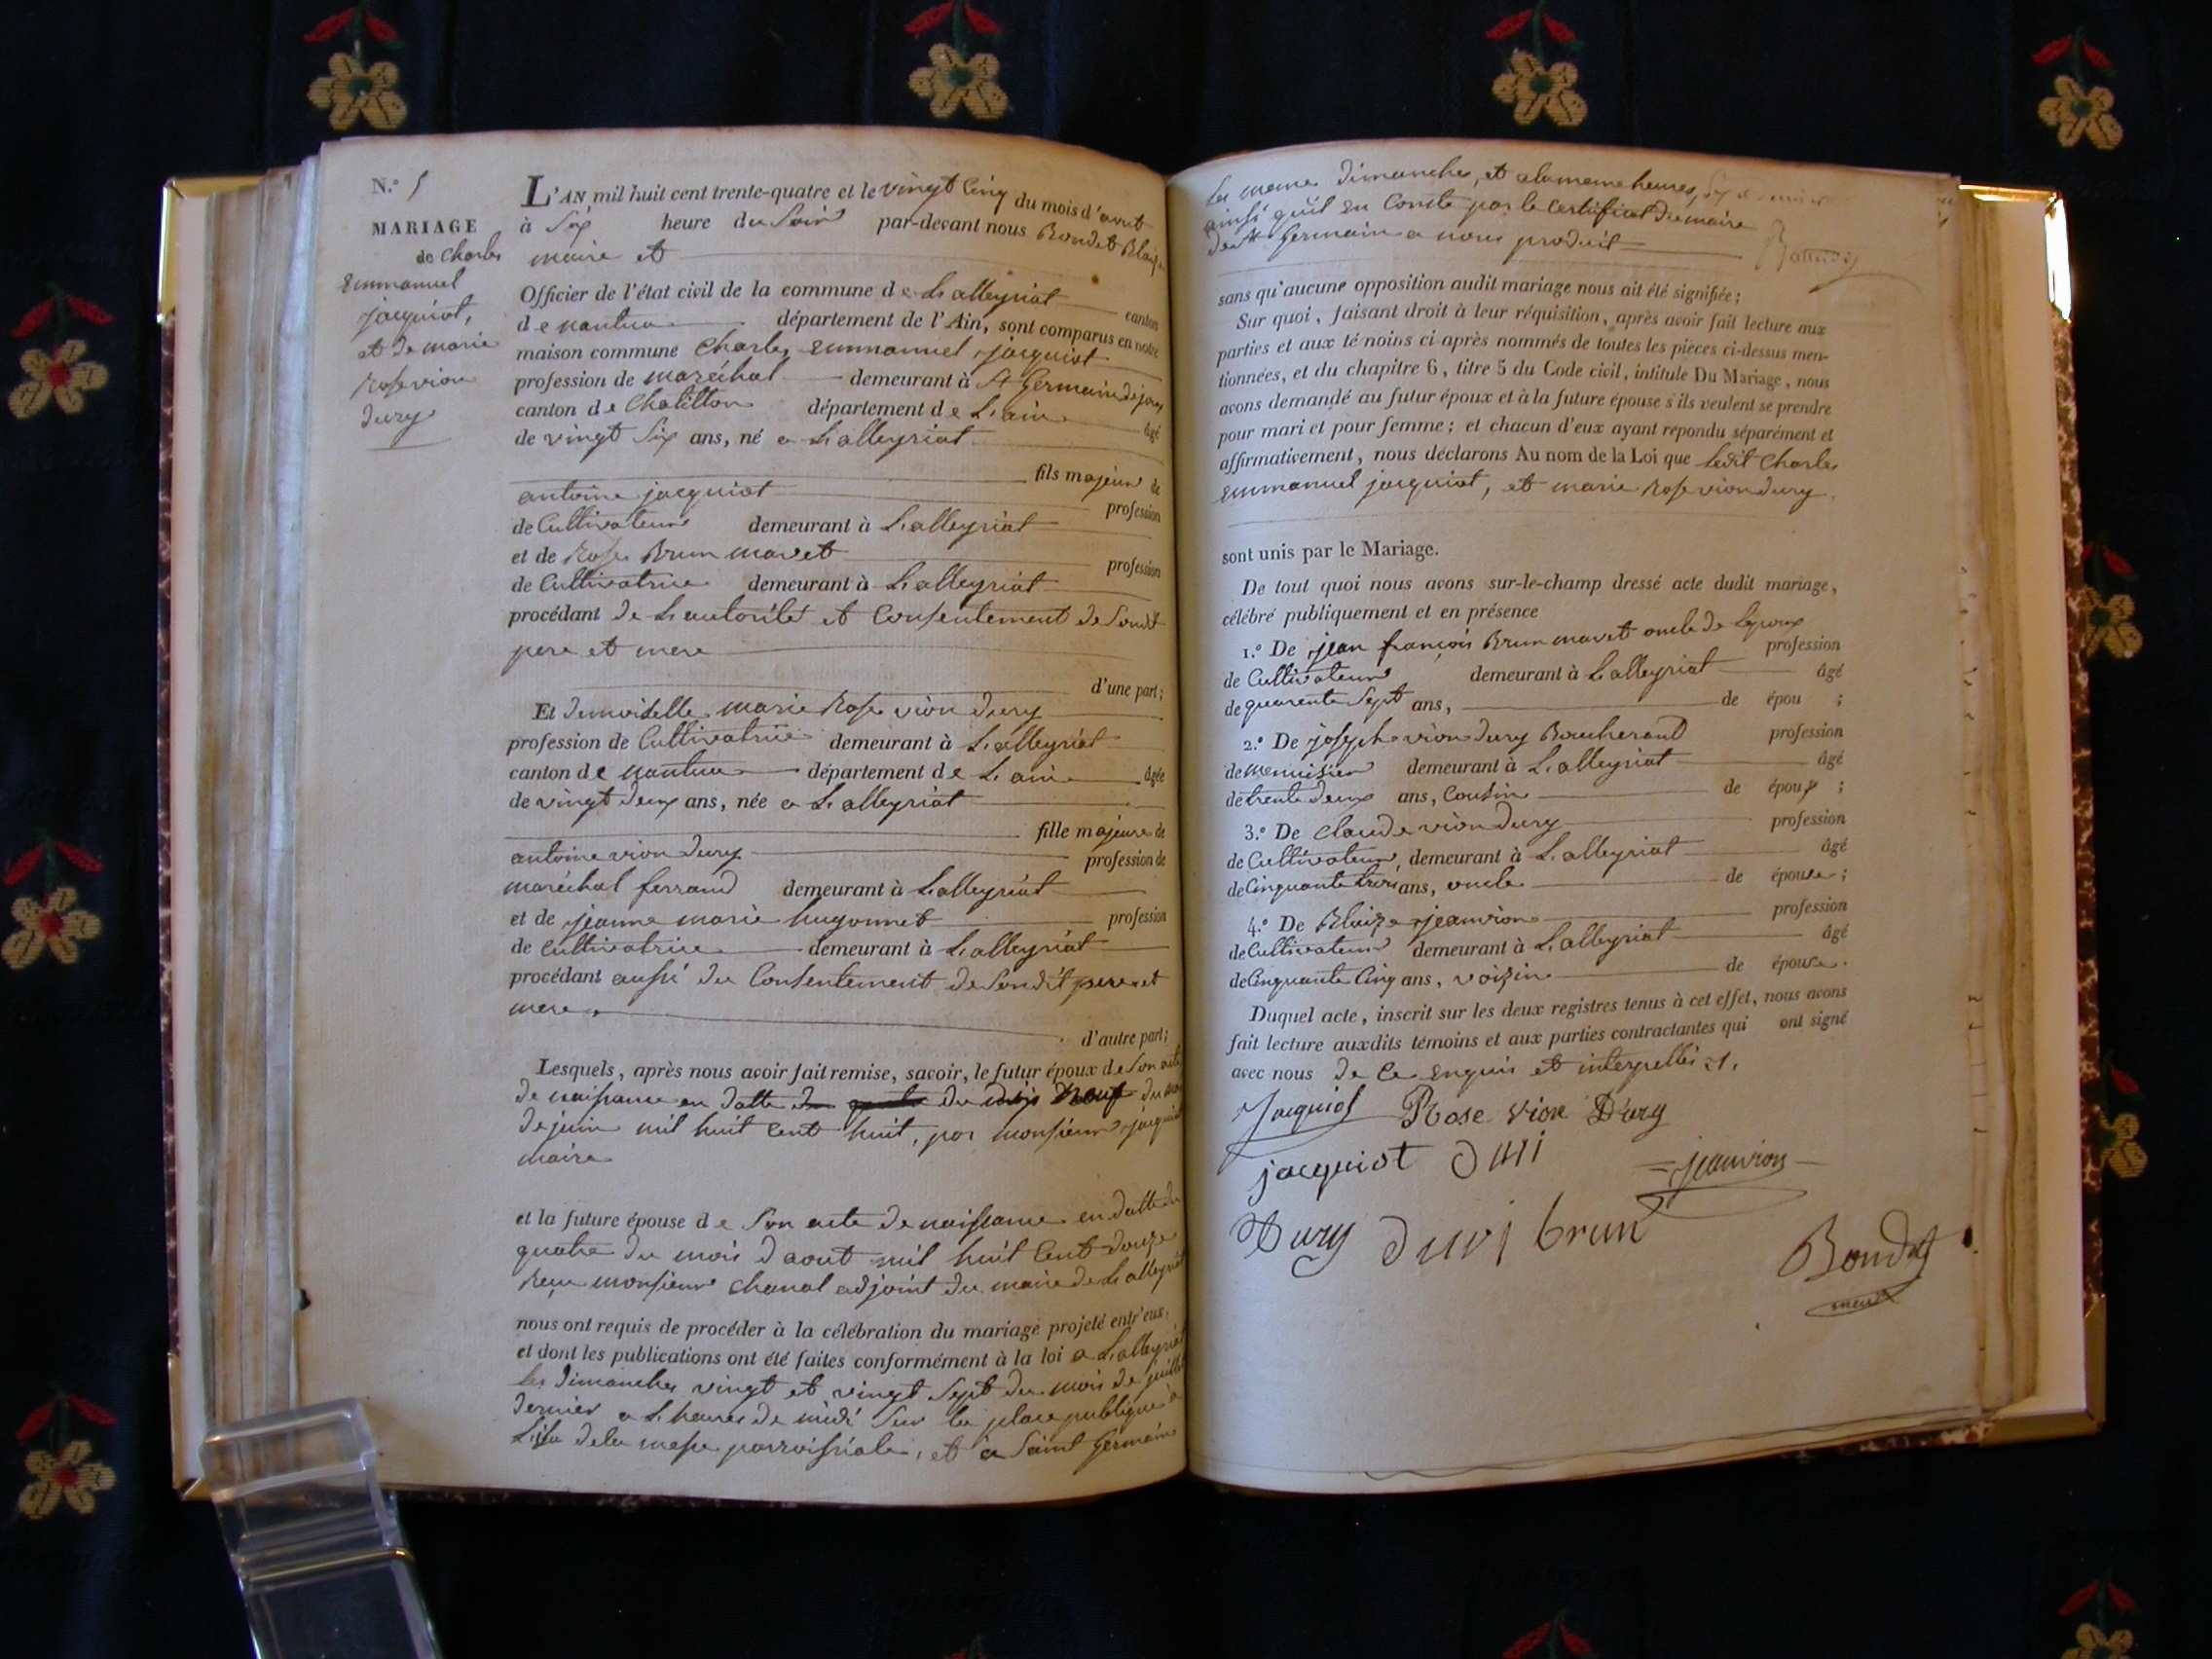 N.° 5
MARIAGE
de Charles
Emmanuel
jacquiot,
et de marie
Rose vion
dury
L'AN mil huit cent trente-quatre et le vingt cinq du mois d'aout
à Six heure du Soir par-devant nous Bondet Blaize
maire et
Officier de l'état civil de la commune de Lalleyriat canton
de nantua département de l'Ain, sont comparus en notre
maison commune Charles Emmanuel jacquiot
profession de maréchal demeurant à St Germain de joux
canton de Chatillon département de L'ain âgé
de vingt Six ans, né a Lalleyriat
fils majeur de
antoine jacquiot profession
de Cultivateur demeurant à Lalleyriat
et de Rose Brun mavet profession
de Cultivatrice demeurant à Lalleyriat
procédant de L'autorité et Consentement de Sondit
pere et mere
d'une part;
Et demoiselle marie Rose vion dury
profession de Cultivatrice demeurant à Lalleyriat
canton de nantua département de L'ain âgée
de vingt deux ans, née a Lalleyriat
fille majeure de
antoine vion dury profession de
maréchal ferrand demeurant à Lalleyriat
et de jeanne marie hugonnet profession
de Cultivatrice demeurant à Lalleyriat
procédant aussi du Consentement de Sondit pere et
mere
d'autre part;
Lesquels, après nous avoir fait remise, savoir, le futur époux de Son acte
de naissance en datte du neuf du mois
de juin mil huit Cent huit, par monsieur jacquiot
maire
et la future épouse de Son acte de naissance en datte du
quatre du mois d'aout mil huit Cent douze
Reçu monsieur Chanal adjoint du maire de Lalleyriat
nous ont requis de procéder à la célébration du mariage projeté entr'eux;
et dont les publications ont été faites conformément à la loi a Lalleyriat
les dimanches vingt et vingt Sept du mois de juillet
dernier a L'heure de midi Sur la place publique à
L'issu de la messe parroissiale, et a Saint Germain
les meme dimanches, et a la meme heures,
ainsi qu'il en Conste par le Certificat du maire
de St Germain a nous produit
Bondet
sans qu'aucune opposition audit mariage nous ait été signifiée;
Sur quoi, faisant droit à leur réquisition, après avoir fait lecture aux
parties et aux témoins ci-après nommés de toutes les pièces ci-dessus men-
tionnées, et du chapitre 6, titre 5 du Code civil, intitulé Du Mariage, nous
avons demandé au futur époux et à la future épouse s'ils veulent se prendre
pour mari et pour femme; et chacun d'eux ayant répondu séparément et
affirmativement, nous déclarons Au nom de la Loi que Ledit Charles
Emmanuel jacquiot, et marie Rose vion dury
sont unis par le Mariage.
De tout quoi nous avons sur-le-champ dressé acte dudit mariage,
célébré publiquement et en présence
1.° De jean françois Brun mavet oncle de Lepoux profession
de Cultivateur demeurant à Lalleyriat âgé
de quarente Sept ans, de épou ;
2.° De joseph vion dury Boucherand profession
de menuisier demeurant à Lalleyriat âgé
de trente deux ans, Cousin de époux ;
3.° De Claude vion dury profession
de Cultivateur, demeurant à Lalleyriat âgé
de Cinquante trois ans, oncle de épouse ;
4.° De Blaize jeanvion profession
de Cultivateur demeurant à Lalleyriat âgé
de Cinquante Cinq ans, voizin de épouse.
Duquel acte, inscrit sur les deux registres tenus à cet effet, nous avons
fait lecture auxdits témoins et aux parties contractantes qui ont signé
avec nous de Ce Enquis et interpellés
Jacquiot Rose vion Dury
jacquiot duri jeanvion
Dury duri brun
Bondet
maire